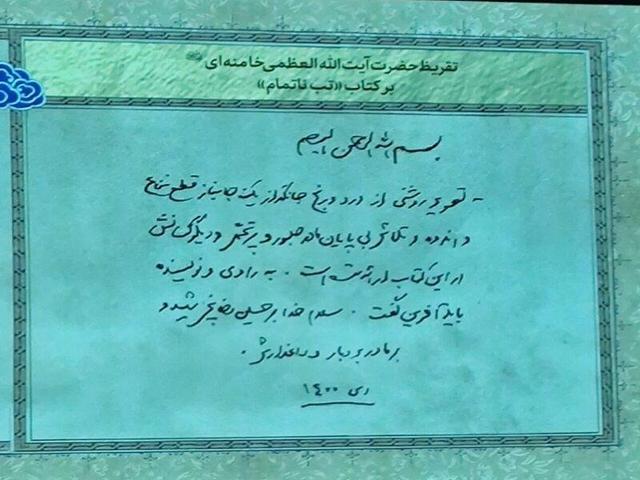 تقریظ حضرت آیت الله العظمی خامنه‌ای
بر کتاب «تب ناتمام»
بسم الله الرحمن الرحیم
- تصویر روشنی از درد و رنج جانکاه یک جانباز قطع نخاع
و اندوه و تلاش بی پایان مادر صبور و پرتحمّل و دیگر کسانش
در این کتاب ارائه شده است. به راوی و نویسنده
باید آفرین گفت. سلام خدا بر حسین دخانچی شهید و
بر مادر بردبار و داغدارش.
دی ۱۴۰۰